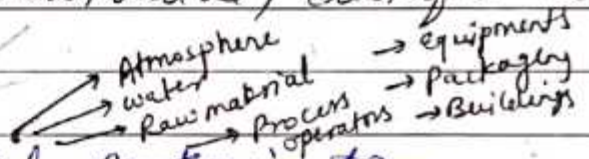 → Atmosphere → equipments
→ water → Packaging
→ Raw material → Buildings
→ Process operators